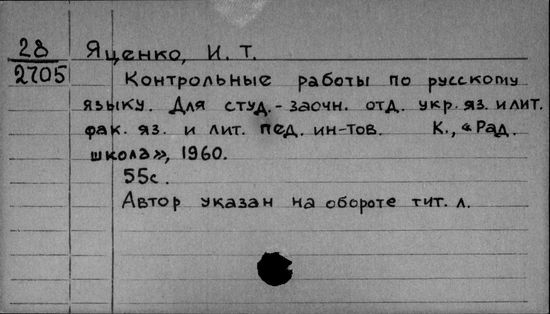 28
2705
Яценко, И. Т.
Контрольные работы по русскому
языку. Для студ.-заочн. отд. укр. яз. и лит.
фак. яз. и лит. пед. ин-тов. К., «Рад.
школа», 1960.
55с.
Автор указан на обороте тит. л.